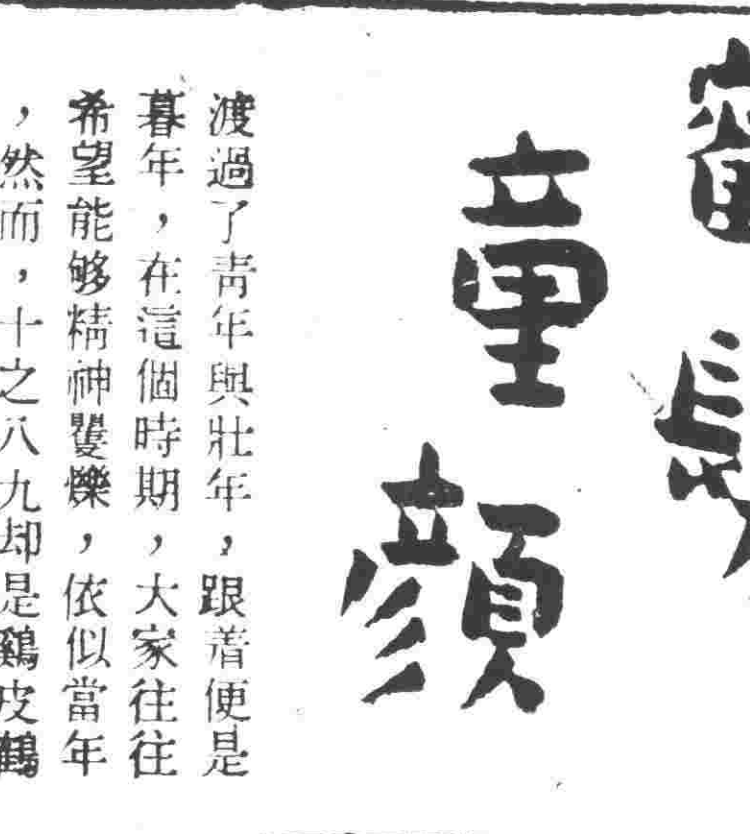 長
童顏
渡過了青年與壯年，跟着便是
暮年，在這個時期，大家往往
希望能够精神矍爍，依似當年
，然而，十之八九却是鷄皮鶴